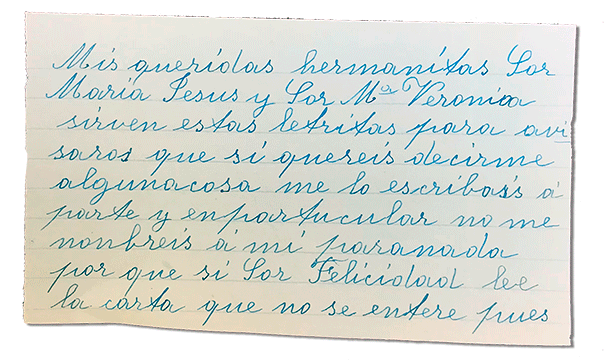 Mis queridas hermanitas Sor
María Jesus y Sor Mª Veronica
sirven estas letritas para avi
saros que si quereis decirme
algunacosa me lo escribais á
parte y enpartucular no me
nonbreis á mi paranada
por que si Sor Felicidad lee
la carta que no se entere pues